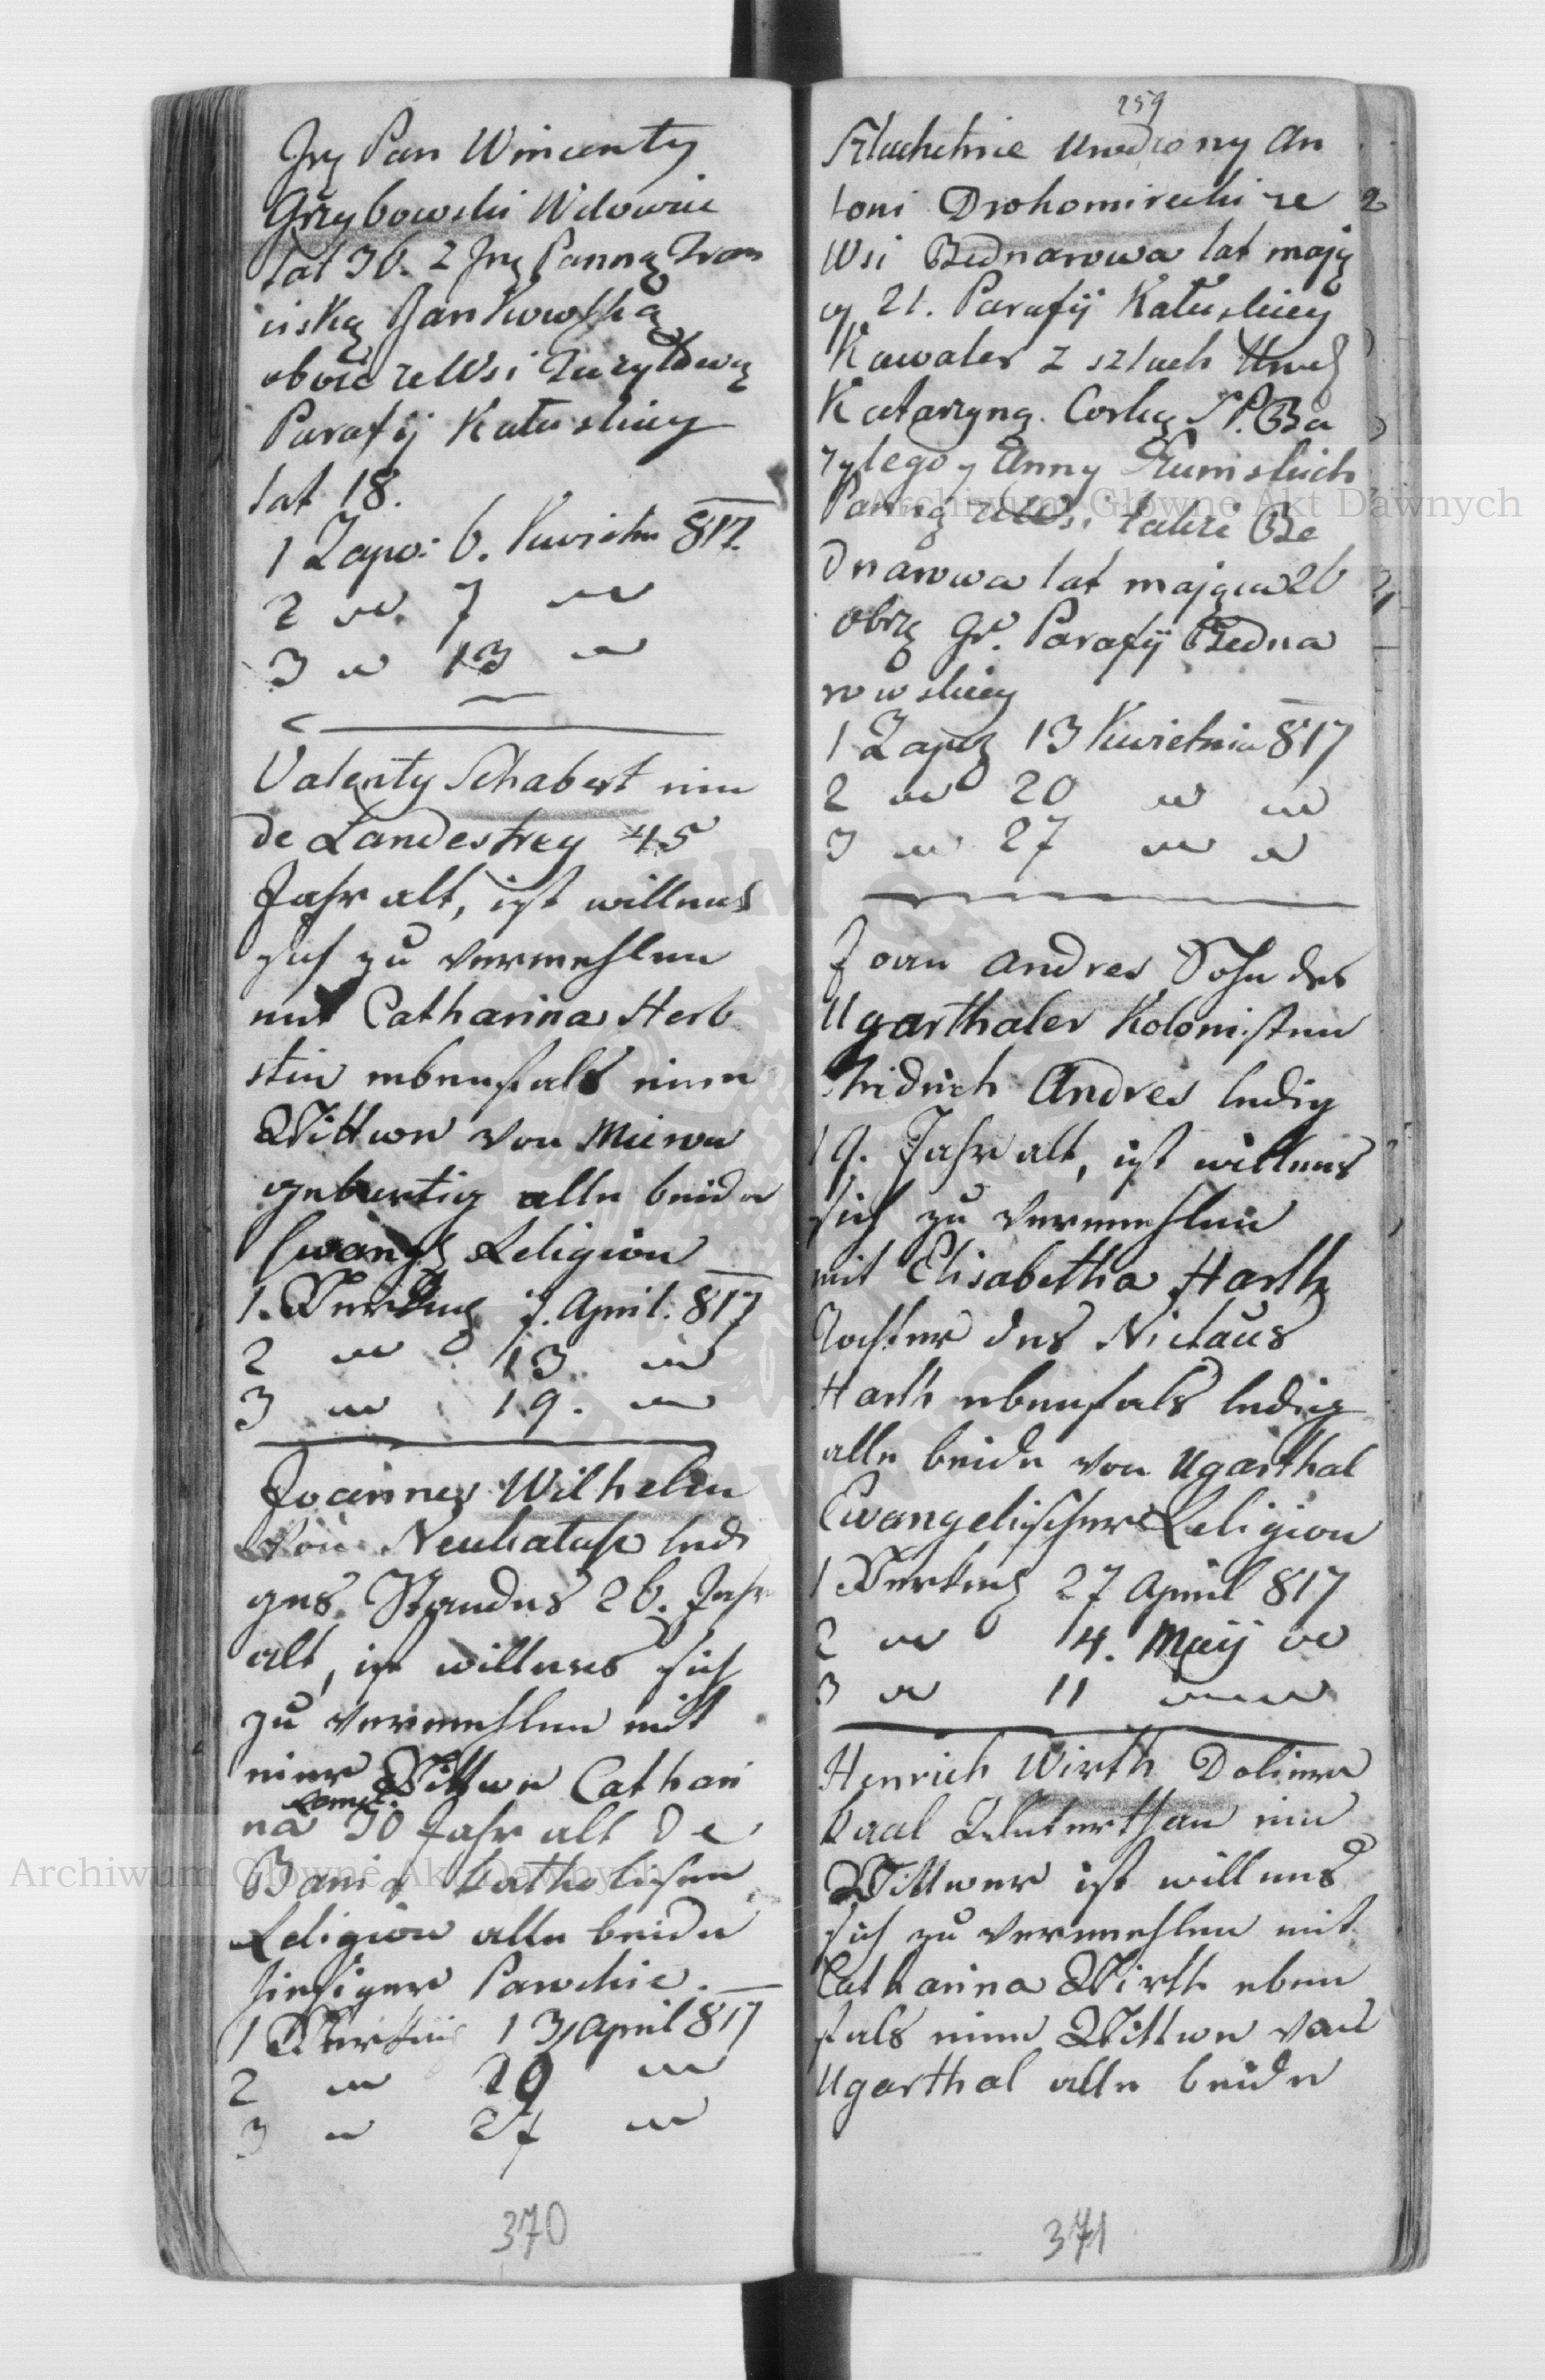 Jmę Pan Wincenty
Grzybowski Wdowiec
lat 36. z Jmę Panną Fran
ciszką Jankowską
oboie ze Wsi
Parafij Kałuskiey
lat 18.
1 Zapo: 6. Kwietn 817
2 " 7 "
3 " 13 "
Valenty Schabert ein
de Landestrey 45
Jahr alt, ist willens
sich zu vermehlen
mit Catharina Herb
stin ebenfals einer
Wittwe von
gebürtig alle beide
Ewang Religion
1. Verking 7. April. 817
2 " 13 "
3 " 19. "
Joannes Wilhelm
von Neukałusz ledi
ges Standes 26. Jahr
alt, ist willens sich
zu vermehlen mit
einer Wittwe Cathari
na 30 Jahr alt de
Bania Katholischen
Religion alle beide
hiesiger Parochie.
1 Verking 13 April 817
2 " 20 "
3 " 27 "
370
259
Szlachetnie Urodzony An
toni Drohomirecki ze
Wsi Bednarowa lat mają
cy 21. Parafij Kałuskiey
Kawaler z szlach Urodz
Katarzyną Corką S.P. Ba
zylego y Anny
Panną ze Wsi także Be
dnarowa lat mającą 26
obrzą Gr. Parafij Bedna
rowskiey
1 Zapo 13 Kwietnia 817
2 " 20 " "
3 " 27 " "
Joan Andres Sohn des
Ugarthaler Kolonisten
Fridrich Andres ledig
19. Jahr alt, ist willens
sich zu vermehlen
mit Elisabetha Harth
Tochter des Niclaus
Harth ebenfals ledig
alle beide von Ugarthal
Ewangelischer Religion
1 Verking 27 April 817
2 " 4. Maij "
3 " 11 "
Henrich Wirth Doliner
Kaal Unterthan ein
Wittwer ist willens
sich zu vermehlen mit
Catharina Wirth eben
fals eine Wittwe von
Ugarthal alle beide
371
Archiwum Główne Akt Dawnych
Archiwum Główne Akt Dawnych